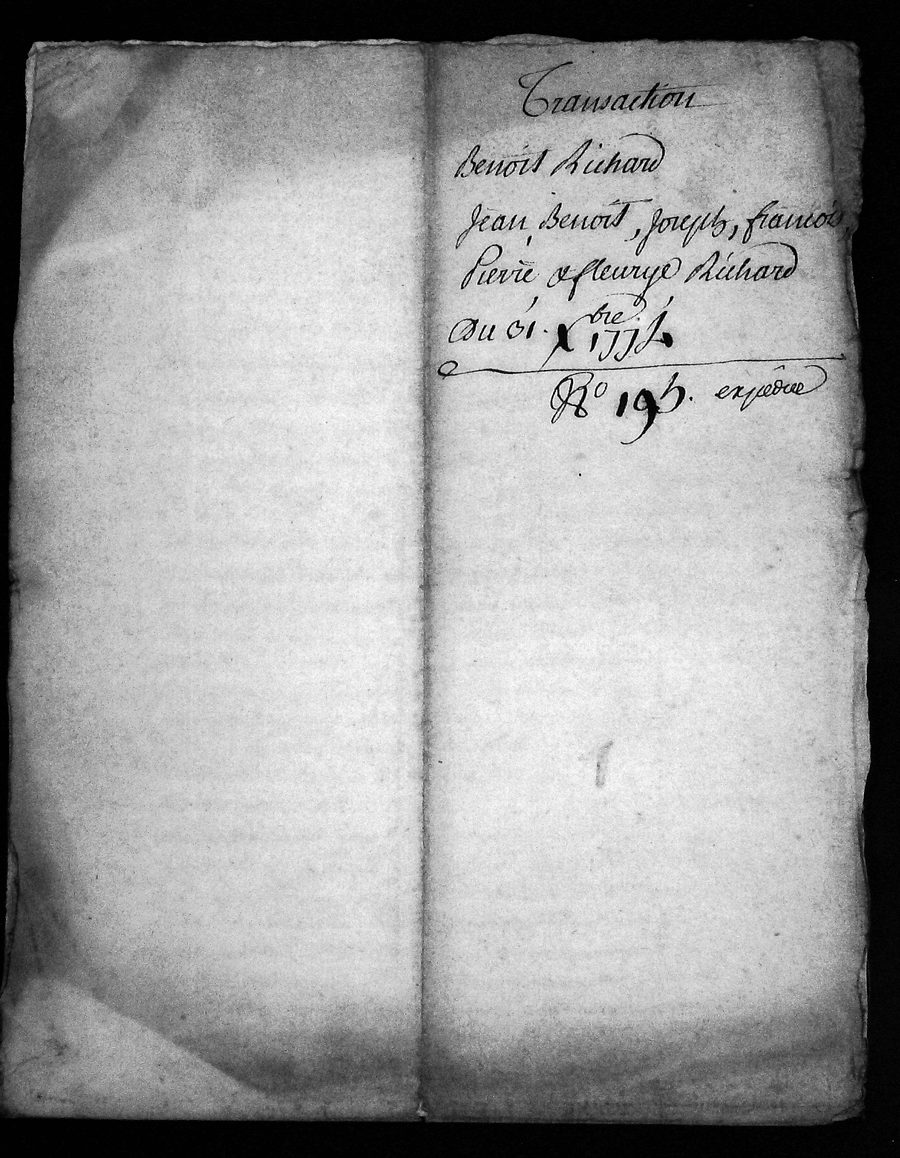 Transaction
Benoit Richard
Jean, Benoit, Joseph, francois,
Pierre & fleurye Richard
Du 31. Xbre. 1774
Ro 195. expediee